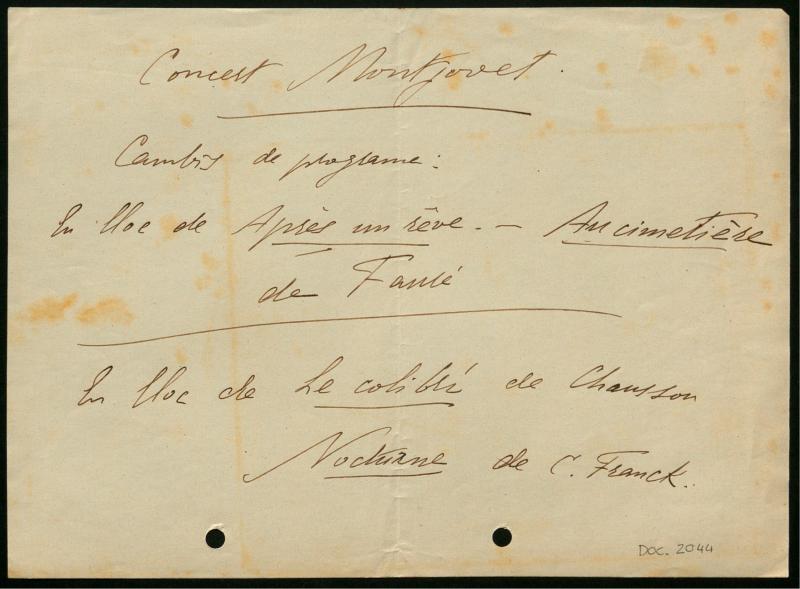 Concert Montjovet.
Cambis de programe:
En lloc de Après un rêve. — Au cimetière
de Fauré
En lloc de Le colibri de Chausson
Nocturne de C. Franck.
DOC. 2044